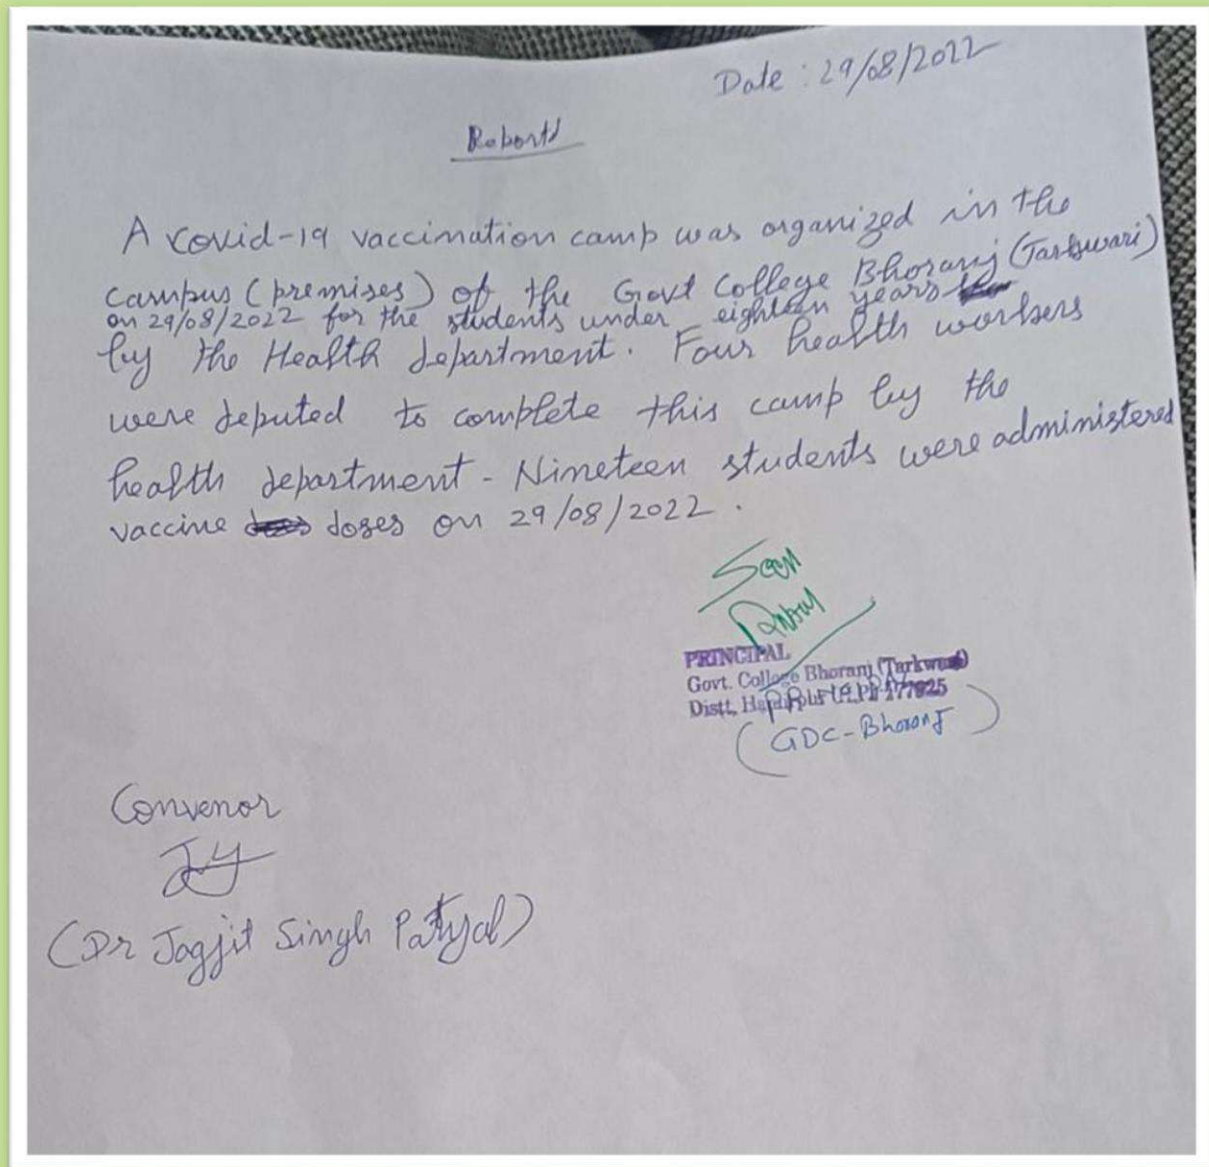 Date : 29/08/2022
Reports
A Covid-19 vaccination camp was organized in the
campus (premises) of the Govt College Bhoranj (Tarkwari)
on 29/08/2022 for the students under eighteen years
by the Health department. Four health workers
were deputed to complete this camp by the
health department - Nineteen students were administered
vaccine doses on 29/08/2022 .
Seen
PRINCIPAL
Govt. College Bhoranj (Tarkwari)
Distt. Hamirpur (H.P.) 177025
(GDC-Bhoranj)
Convenor
(Dr Jagjit Singh Patyal)